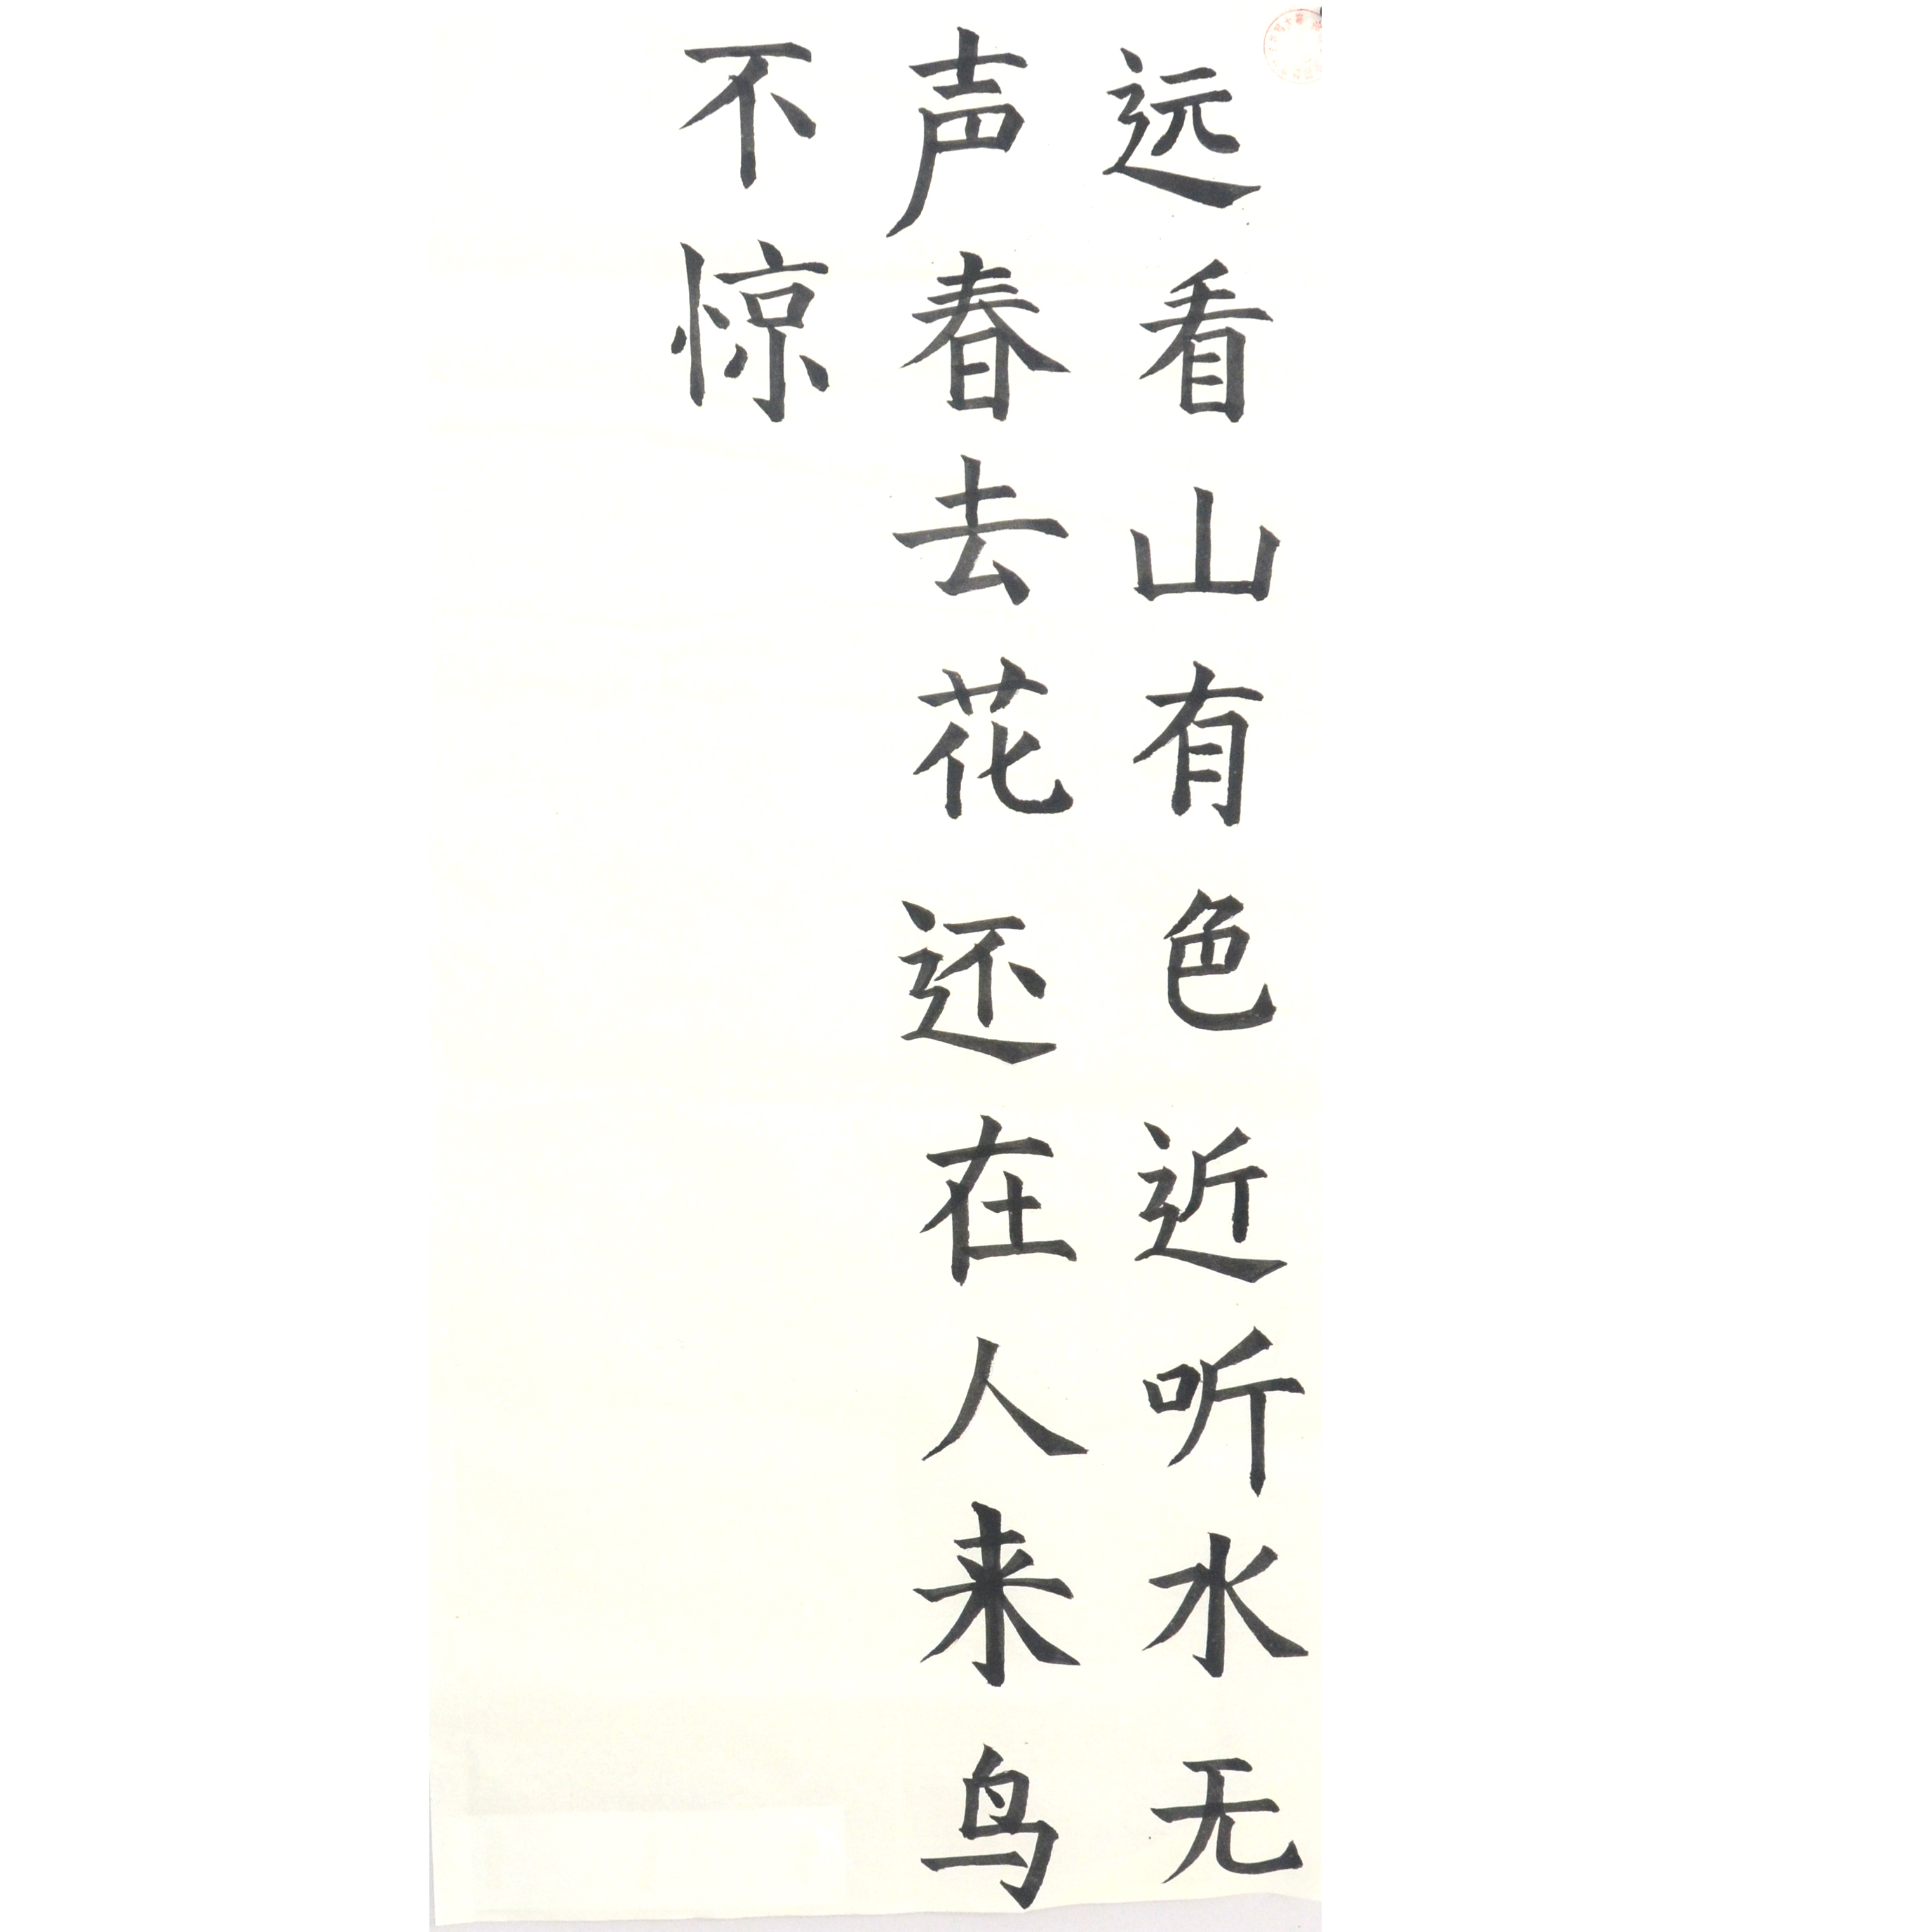 远看山有色近听水无
声春去花还在人来鸟
不惊